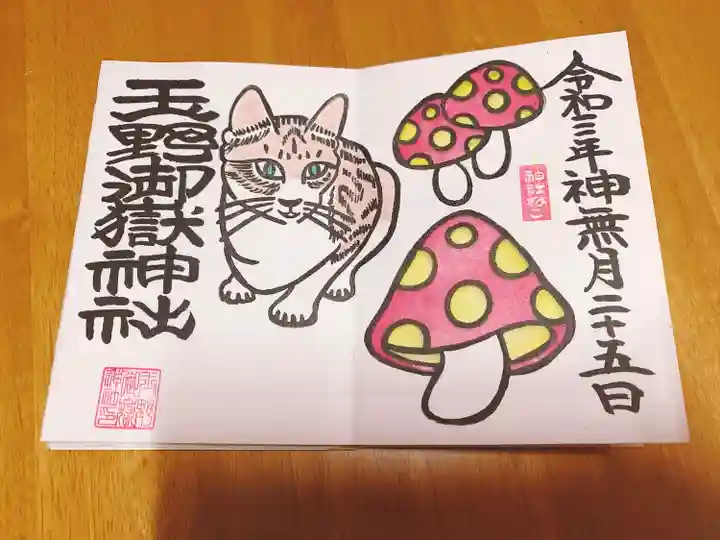 令和三年神無月二十五日
神社ねこ
玉野御嶽神社